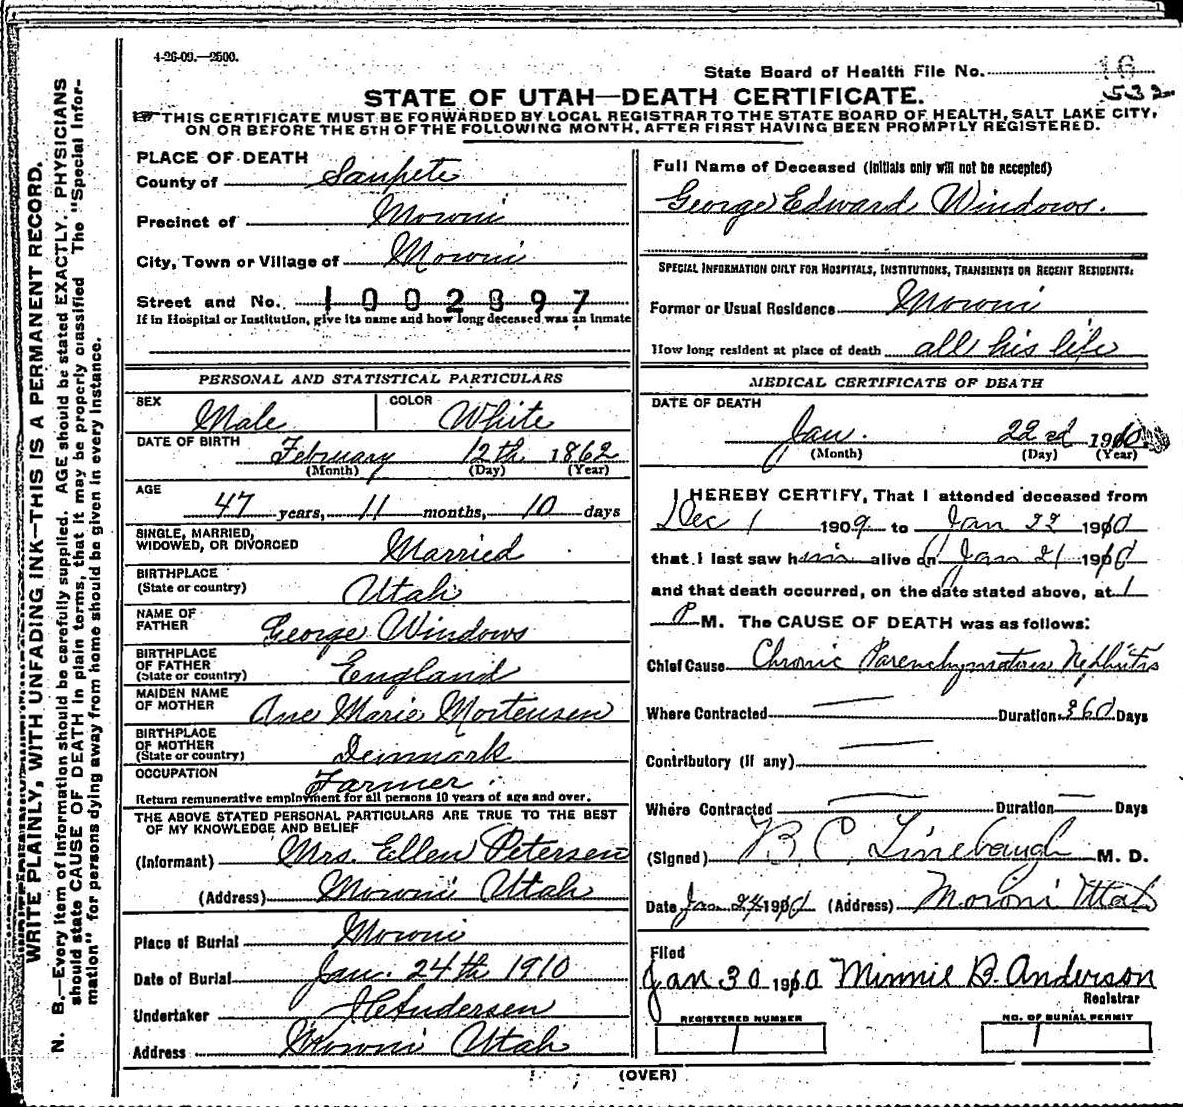 4-26-09.—2500.
State Board of Health File No. 16
532
STATE OF UTAH—DEATH CERTIFICATE.
THIS CERTIFICATE MUST BE FORWARDED BY LOCAL REGISTRAR TO THE STATE BOARD OF HEALTH, SALT LAKE CITY,
ON OR BEFORE THE 5TH OF THE FOLLOWING MONTH, AFTER FIRST HAVING BEEN PROMPTLY REGISTERED.
WRITE PLAINLY, WITH UNFADING INK—THIS IS A PERMANENT RECORD.
N. B.—Every item of information should be carefully supplied. AGE should be stated EXACTLY. PHYSICIANS
should state CAUSE OF DEATH in plain terms, that it may be properly classified The "Special Infor-
mation" for persons dying away from home should be given in every instance.
PLACE OF DEATH
County of Sanpete
Precinct of Moroni
City, Town or Village of Moroni
Street and No. 1002897
If in Hospital or Institution, give its name and how long deceased was an inmate
PERSONAL AND STATISTICAL PARTICULARS
SEX Male COLOR White
DATE OF BIRTH February 12th 1862
(Month) (Day) (Year)
AGE
47 years, 11 months, 10 days
SINGLE, MARRIED,
WIDOWED, OR DIVORCED Married
BIRTHPLACE
(State or country) Utah
NAME OF
FATHER George Windows
BIRTHPLACE
OF FATHER
(State or country) England
MAIDEN NAME
OF MOTHER Ane Marie Mortensen
BIRTHPLACE
OF MOTHER
(State or country) Denmark
OCCUPATION Farmer
Return remunerative employment for all persons 10 years of age and over.
THE ABOVE STATED PERSONAL PARTICULARS ARE TRUE TO THE BEST
OF MY KNOWLEDGE AND BELIEF
(Informant) Mrs. Ellen Petersen
(Address) Moroni Utah
Place of Burial Moroni
Date of Burial Jan. 24th 1910
Undertaker Andersen
Address Moroni Utah
Full Name of Deceased (Initials only will not be accepted)
George Edward Windows.
SPECIAL INFORMATION ONLY FOR HOSPITALS, INSTITUTIONS, TRANSIENTS OR RECENT RESIDENTS:
Former or Usual Residence Moroni
How long resident at place of death all his life
MEDICAL CERTIFICATE OF DEATH
DATE OF DEATH
Jan. 22nd 1910
(Month) (Day) (Year)
I HEREBY CERTIFY, That I attended deceased from
Dec 1 1909 to Jan 22 1910
that I last saw him alive on Jan 21 1910
and that death occurred, on the date stated above, at 1
P M. The CAUSE OF DEATH was as follows:
Chief Cause Chronic Parenchymatous Nephritis
Where Contracted — Duration 360 Days
Contributory (if any) —
Where Contracted — Duration — Days
(Signed) B. C. Linebaugh M. D.
Date Jan 24 1910 (Address) Moroni Utah
Filed
Jan 30 1910 Minnie B. Anderson
Registrar
REGISTERED NUMBER NO. OF BURIAL PERMIT
1 1
(OVER)